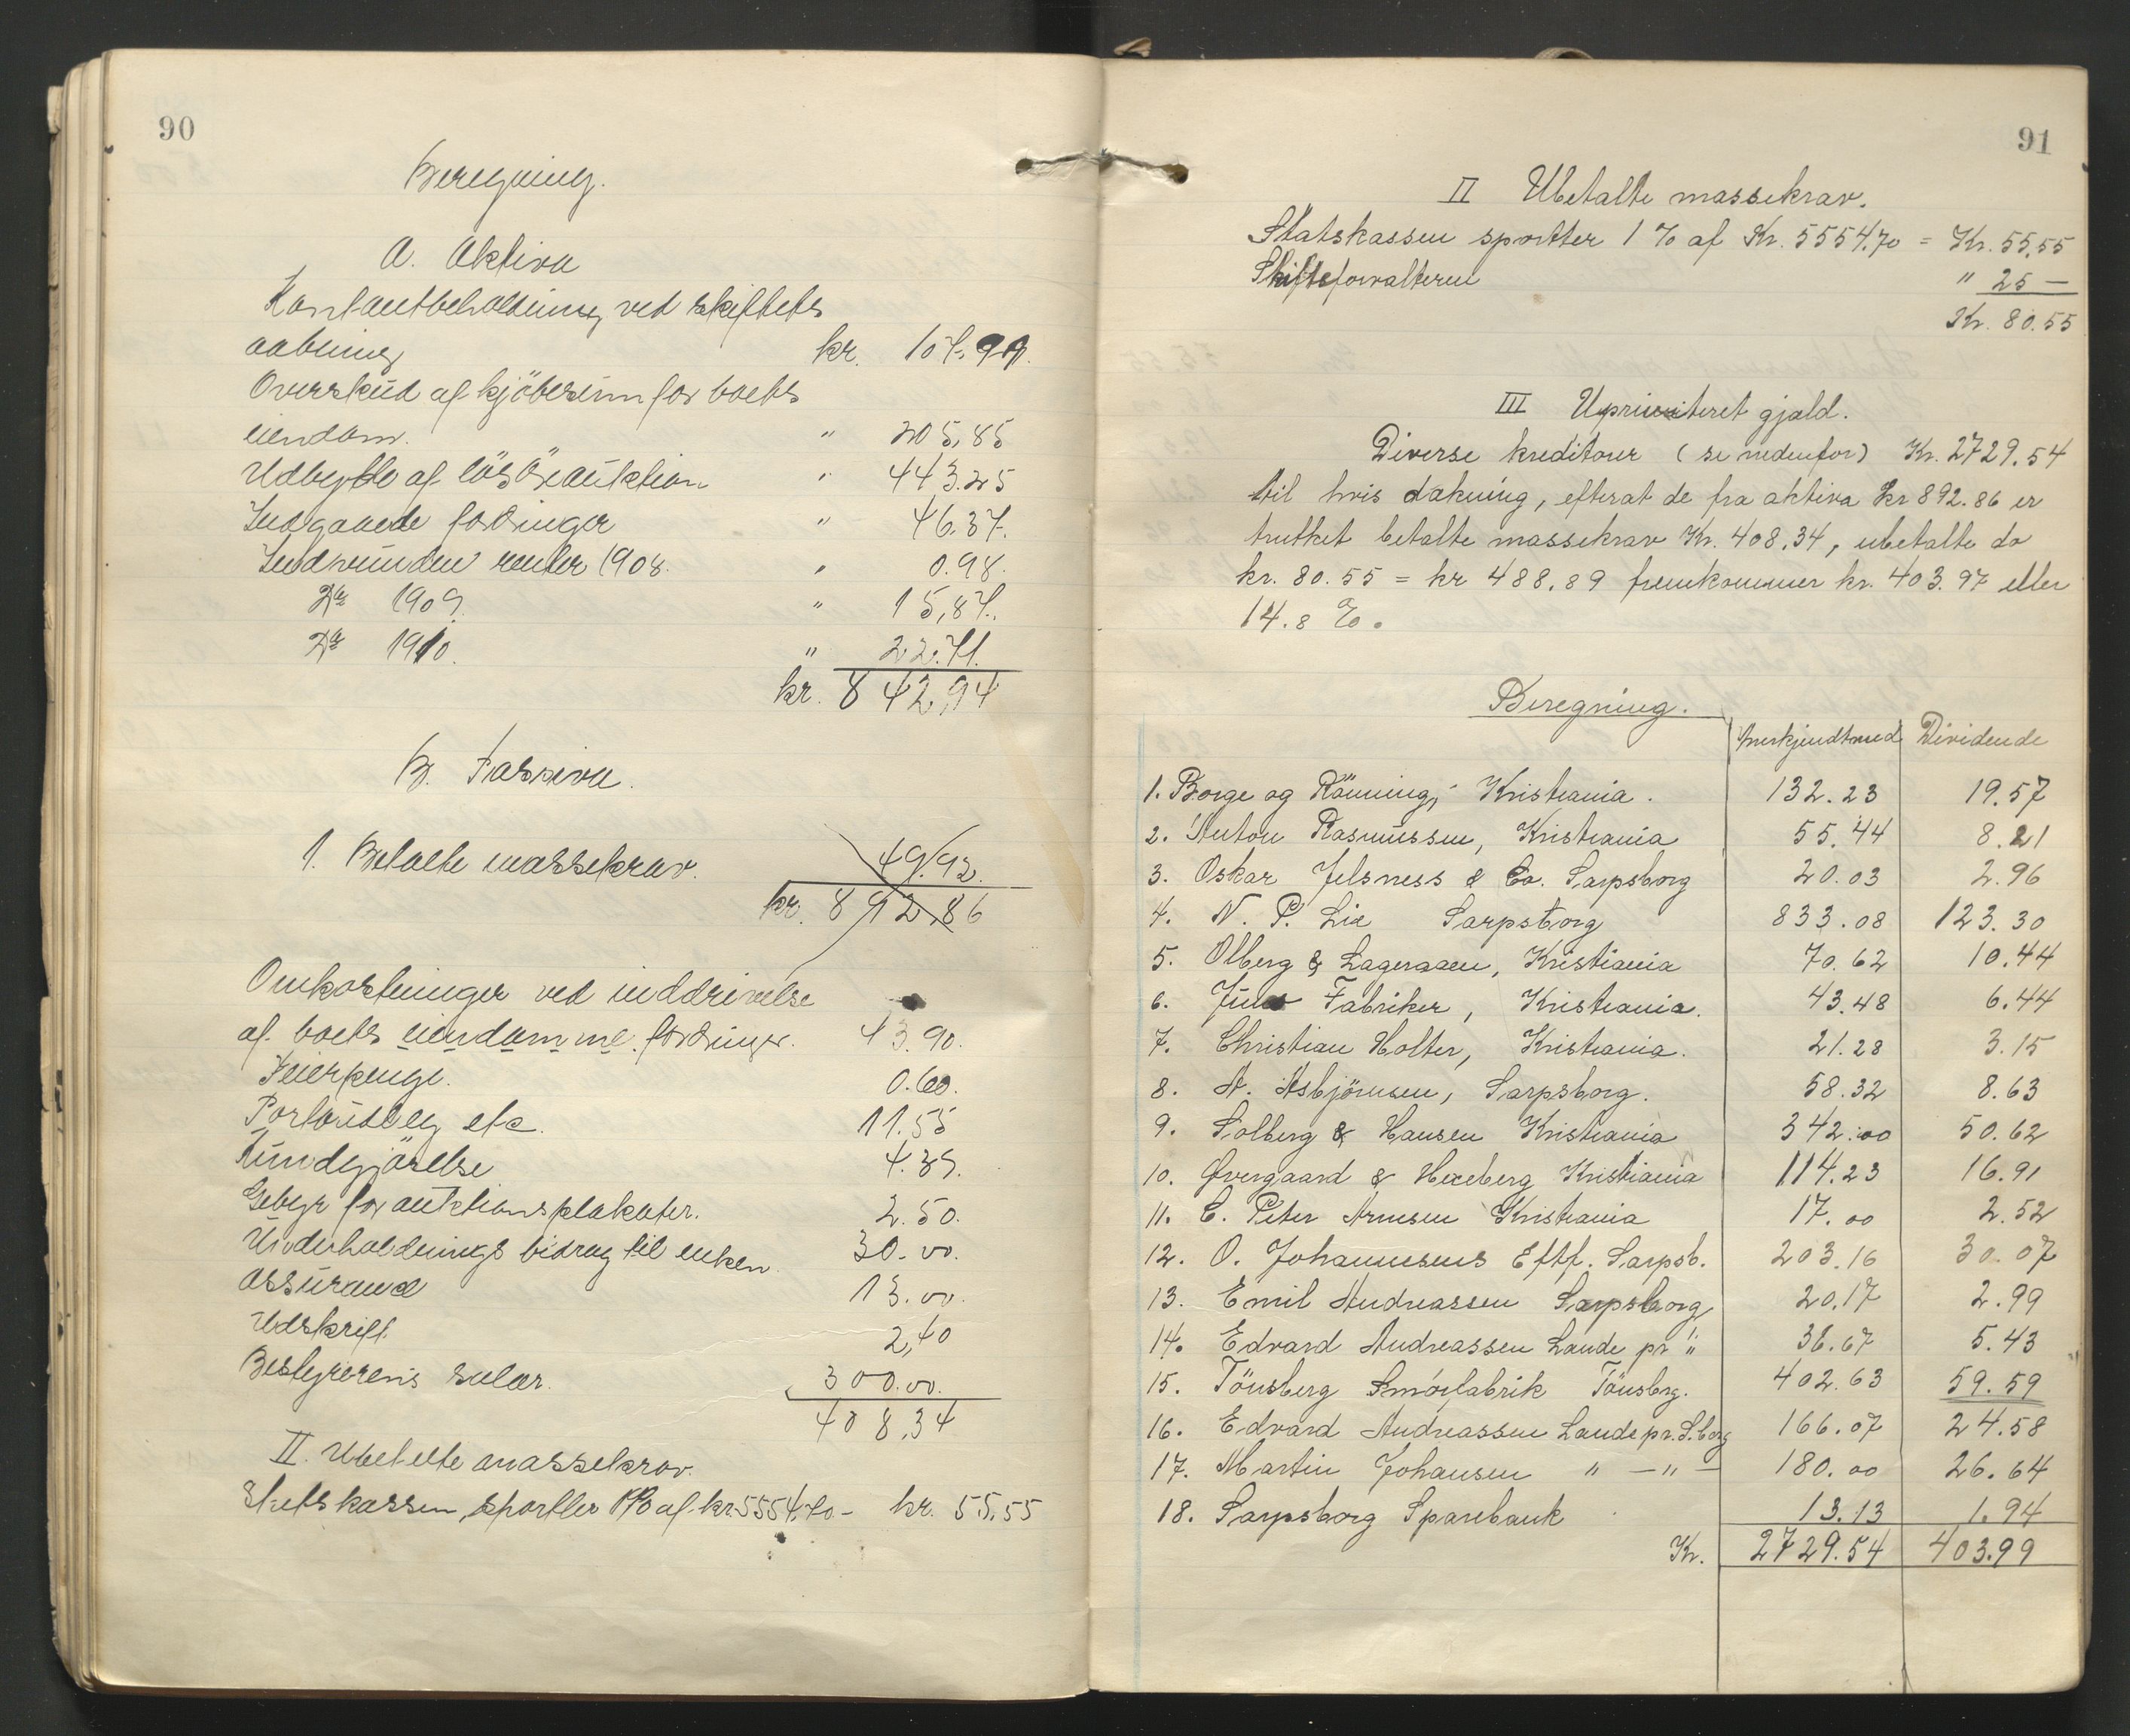 90
Beregning.
A. Aktiva
Kontantbeholdning ved skiftets
aabning kr. 107.91.
Overskud af kjöbesum for boets
eiendom. " 205,85
Udbytte af lösöreauktion " 443.25
Indgaaede fordringer " 46.37.
Indvunden renter 1908. " 0.98.
Do 1909. " 15,87.
Do 1910. " 22.71.
kr. 842,94
B. Passiva.
1. Betalte massekrav. 49.92.
kr. 892.86
Omkostninger ved inddrivelse
af boets eiendomme fordringer. 43.90.
Feierpenge. 0.60.
Portoudlæg etc. 11.55
Kundgjörelse 4.39.
Gebyr for auktionsplakater. 2.50.
Underholdnings bidrag til enken 30.00.
Assurance 13.00.
Udskrift 2,40
Bestyrerens salær. 300.00.
408,34
II. Ubetalte massekrav.
Statskassen, sportler 1% af kr. 5554,70 - kr. 55,55
91
II Ubetalte massekrav.
Statskassen sportler 1 % af Kr. 5554.70 = Kr. 55.55
Skifteforvalteren " 25 —
Kr. 80.55
III Uprioriteret gjæld.
Diverse kreditorer (se nedenfor) Kr. 2729.54
til hvis dækning, efterat de fra aktiva kr 892.86 er
trukket betalte massekrav Kr. 408.34, ubetalte do
kr. 80.55 = kr 488.89 fremkommer kr. 403.97 eller
14.8 %.
Beregning.
Anerkjendt med Dividende
1. Borge og Rönning, Kristiania. 132.23 19.57
2. Anton Rasmussen, Kristiania 55.44 8.21
3. Oskar Jelsness & Co. Sarpsborg 20.03 2.96
4. N. P. Lie Sarpsborg 833.08 123.30
5. Olberg & Lageraaen, Kristiania 70.62 10.44
6. Fabriker, Kristiania. 43.48 6.44
7. Christian Holter, Kristiania. 21.28 3.15
8. A. Asbjörnsen, Sarpsborg. 58.32 8.63
9. Solberg & Hansen Kristiania 342.00 50.62
10. Øvergaard & Hexeberg Kristiania 114.23 16.91
11. C. Peter Arnesen Kristiania 17.00 2.52
12. O. Johannesens Eftf. Sarpsb. 203.16 30.07
13. Emil Andreassen Sarpsborg 20.17 2.99
14. Edvard Andreassen Lande pr " 36.67 5.43
15. Tönsberg Smörfabrik Tönsbrg. 402.63 59.59
16. Edvard Andreassen Lande pr. S.borg 166.07 24.58
17. Martin Johansen " — " — 180.00 26.64
18. Sarpsborg Sparebank 13.13 1.94
Kr. 2729.54 403.99